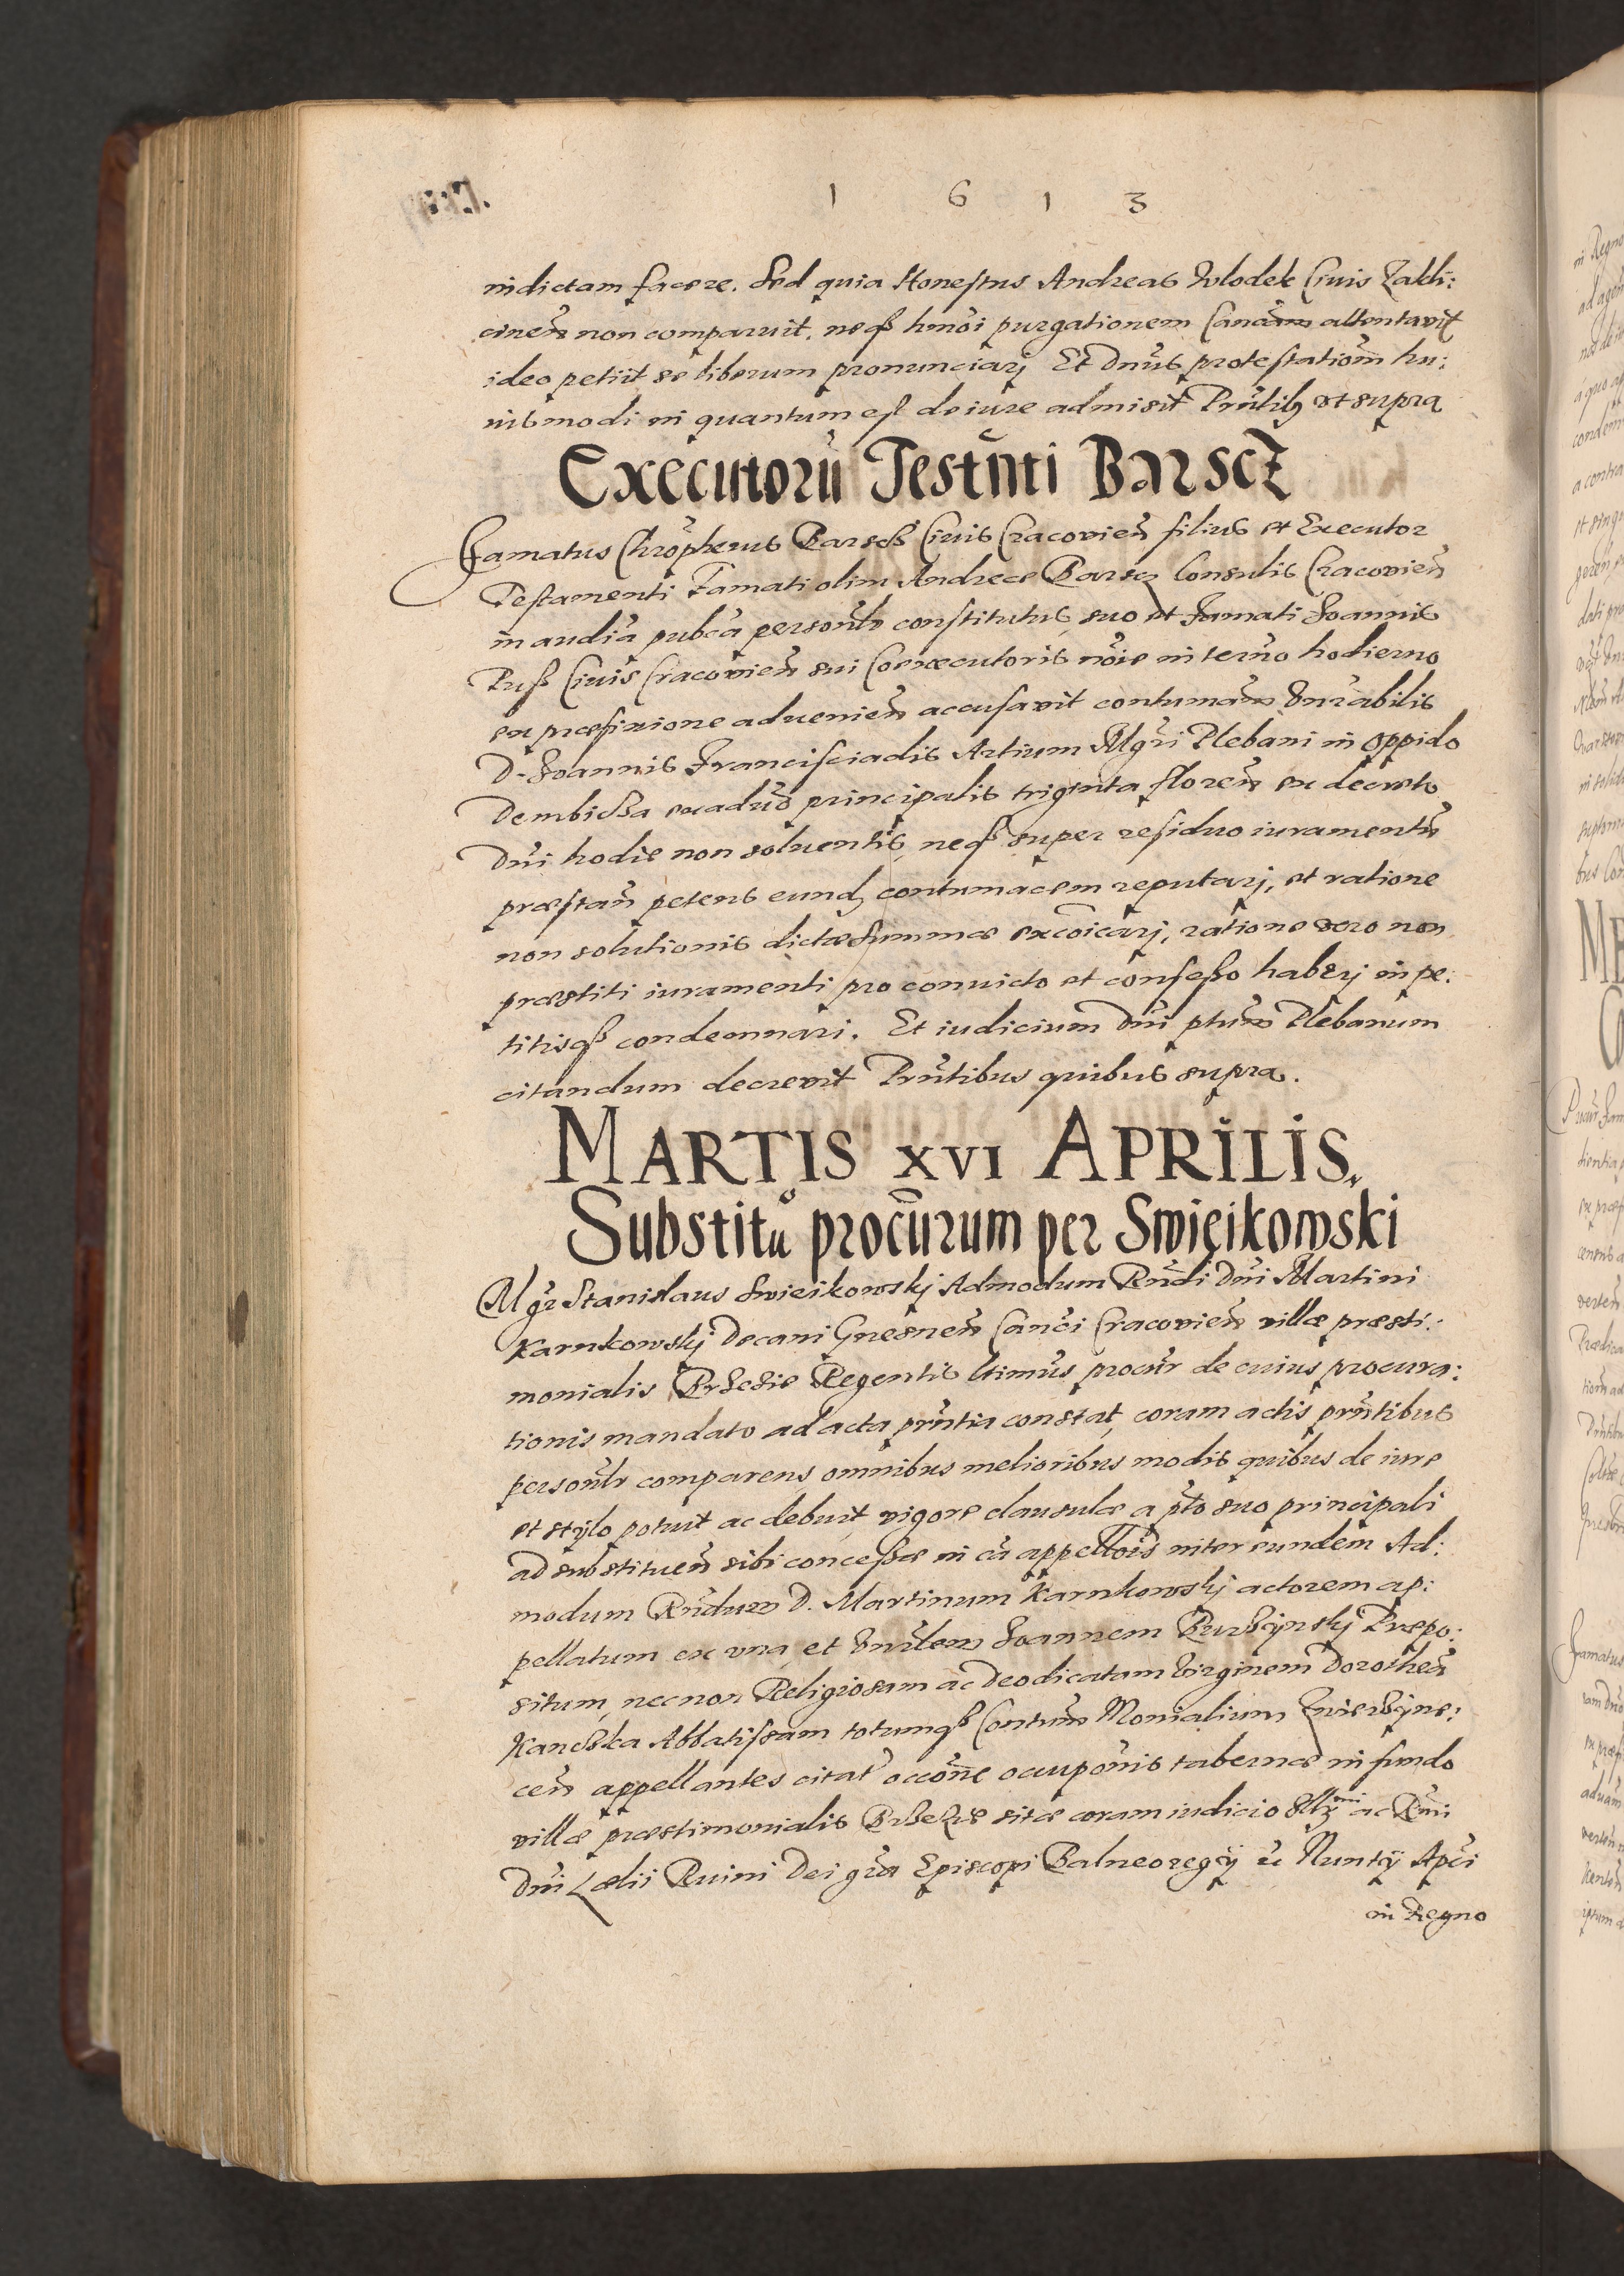 1 6 1 3
indictam facere. Sed quia Honestus Andreas Wlodek Ciuis Zakli:
cineñ non comparuit. neq̃ hmõi purgationem Canõam attentavit
ideo petiit se liberum pronunciarj Et Dnũs protestatiõm hu:
iusmodi in quantum est de iure admisit Prñtibꝫ vt supra
Executorũ Testm̃ti Barscz
Famatus Chrõpherus Barscz Ciuis Cracovień filius et Executor
Testamenti Famati olim Andreæ Barscz Consulis Cracovień
in audiã pubcã personĩr constitutus, suo et Famati Joannis
Ciuis Cracovień sui Coexecutoris nõie in termõ hodierno
ex præfixione advenień accusavit contumaãm Vnrabilis
D. Joannis Francisciadis Artium Mgr̃i Plebani in oppido
Dembicza ex aduõ principalis triginta floreñ ex decreto
Dnĩ hodie non soluentis, neq̃ super residuo iuramentũ
præstań petens eundꝫ contumacem reputarj, et ratione
non solutionis dictæ summæ excõicarj, ratione vero non
præstiti iuramenti pro convicto et confesso haberj in pe:
titisq̃ condemnari. Et iudicium Dnĩ ptum̃ Plebanum
citandum decrevit Prñtibus quibus supra.
MARTIS XVI APRILIS.
Substitũ procũrum per Swięikowski
Mgr̃ Stanislaus Swieikowskj Admodum Rñdi Dnĩ Martini
Karnkowskj Decani Gnesneñ Canõci Cracovień villæ præsti:
monialis Regentis ltimus procũr de cuius procura:
tionis mandato ad acta prñtia constat, coram actis prñtibus
personĩr comparens, omnibus melioribus modis quibus de iure
et stylo potuit ac debuit, vigore clausulæ a ptõ suo principali
ad substitueñ sibi concessæ in cã appellõis inter eundem Ad:
modum Rñdum D. Martinum Karnkowskj actorem ap:
pellatum ex vna, et Vnr̃lem Joannem Præpo:
situm, necnon Religiosam ac Deodicatam Virginem Dorotheã
Abbatissam totumq̃ Contum̃ Monialium Zwierzyne:
ceñ appellantes citat̃ occõne occupõnis tabernæ in fundo
villæ præstimonialis sitæ coram iudicio Illmi ac Rmĩ
Dnĩ Lælii Ruini Dei grã Episcopi Balneoregij ac Nuntij Apcĩ
in Regno